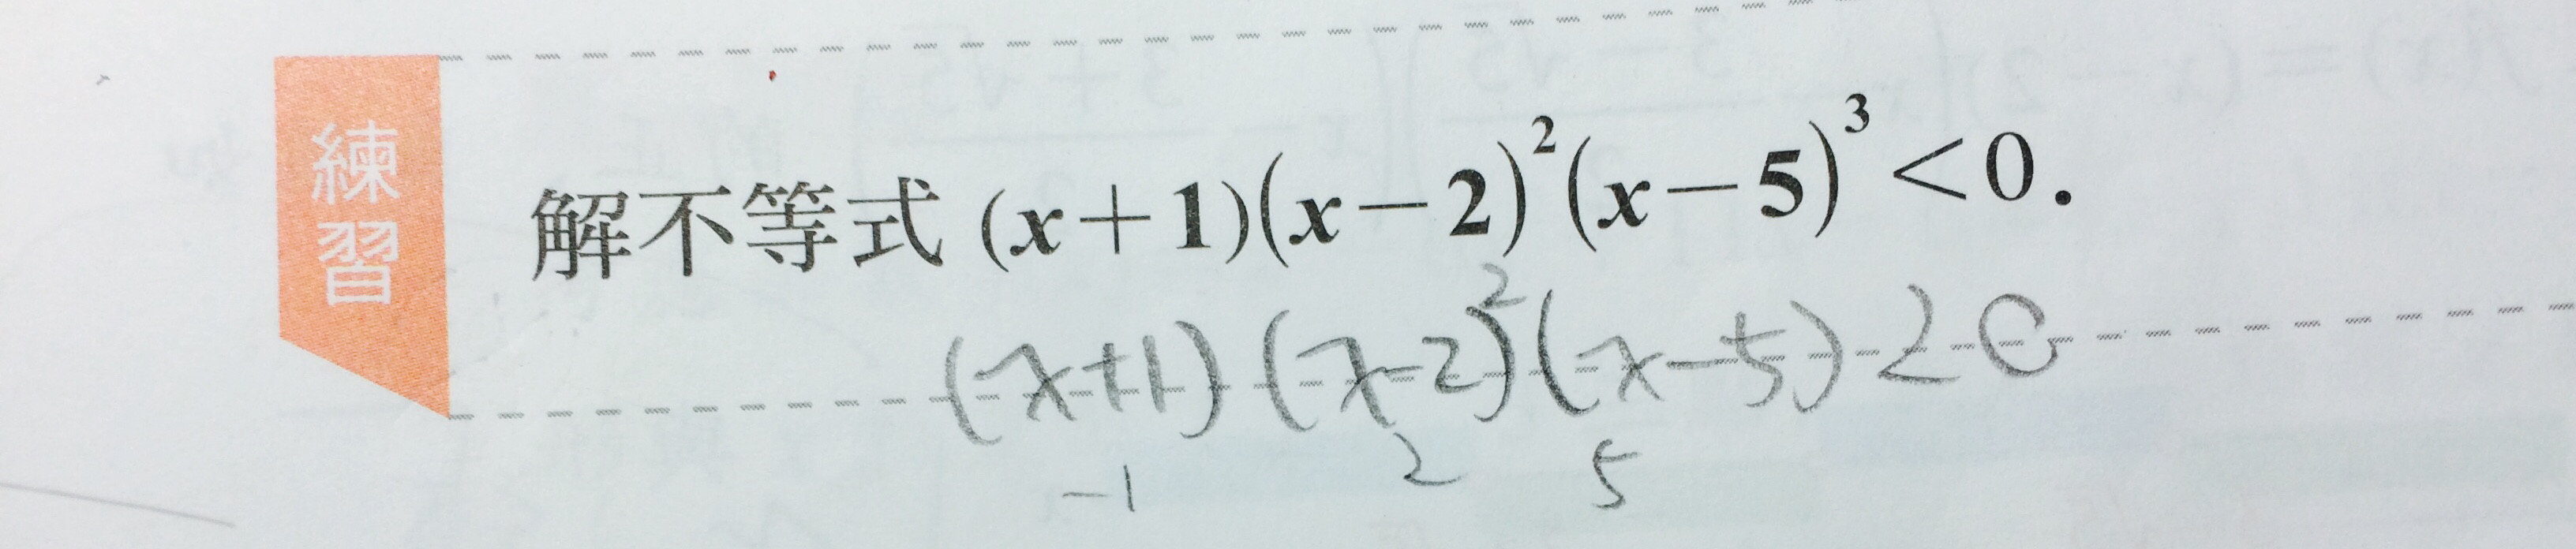 練習
解不等式 (x+1)(x−2)²(x−5)³<0.
(x+1)(x-2)²(x-5)<0
-1 2 5